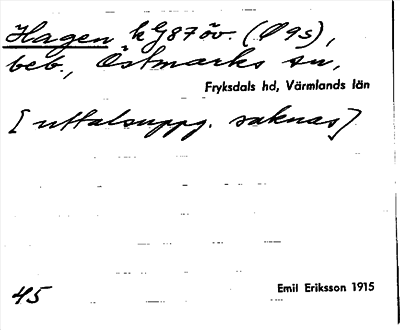 Hagen kG87öv. (Ø95),
beb., Östmarks sn,
Fryksdals hd, Värmlands län
[uttalsuppg. saknas]
45
Emil Eriksson 1915